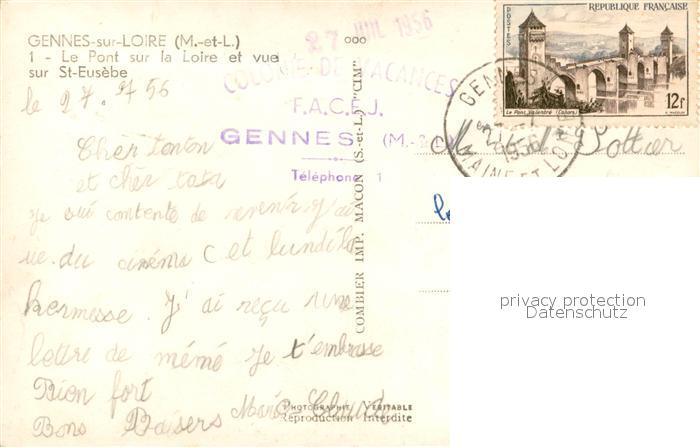 GENNES-sur-LOIRE (M.-et-L.)
1 - Le Pont sur la Loire et vue
sur St-Eusèbe
27 JUIL 1956
COLONIE DE VACANCES
F.A.C.E.J.
GENNES (M.-&-L.)
Téléphone 1
COMBIER IMP. MACON (S.-et-L.) "CIM"
POSTES
REPUBLIQUE FRANÇAISE
Le Pont Valentré (Cahors)
12F
GENNES
1956
MAINE ET LOIRE
le 27. 7 56
Cher tonton
et cher tata
Je sui contente de revenir j'ai
vue du cinéma et lundi la
kermesse. J'ai reçu une
lettre de mémé Je t'embrasse
Bien fort
Bons Baisers
Pottier
PHOTOGRAPHIE VERITABLE
Reproduction Interdite
privacy protection
Datenschutz